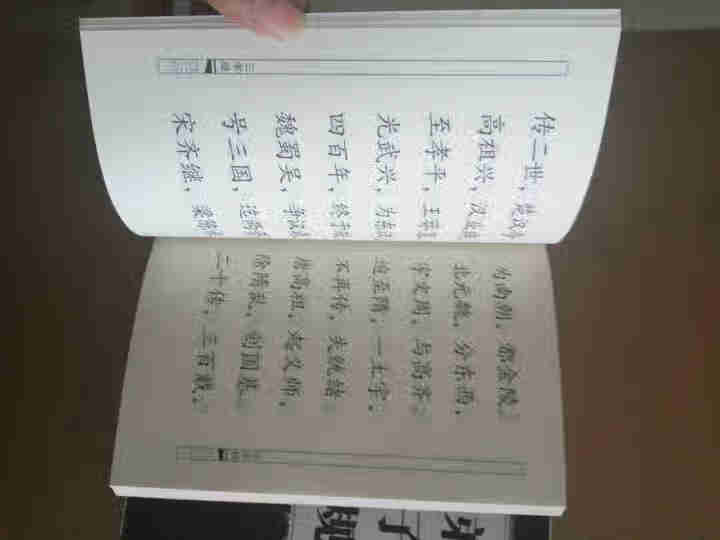 三字经
传二世，楚汉争
高祖兴，汉业建
至孝平，王莽篡
光武兴，为东汉
四百年，终于
魏蜀吴，争汉
号三国，迄两晋
宋齐继，梁陈
为南朝，都金陵。
北元魏，分东西，
宇文周，与高齐。
迨至隋，一土宇，
不再传，失统绪。
唐高祖，起义师，
除隋乱，创国基。
二十传，三百载，